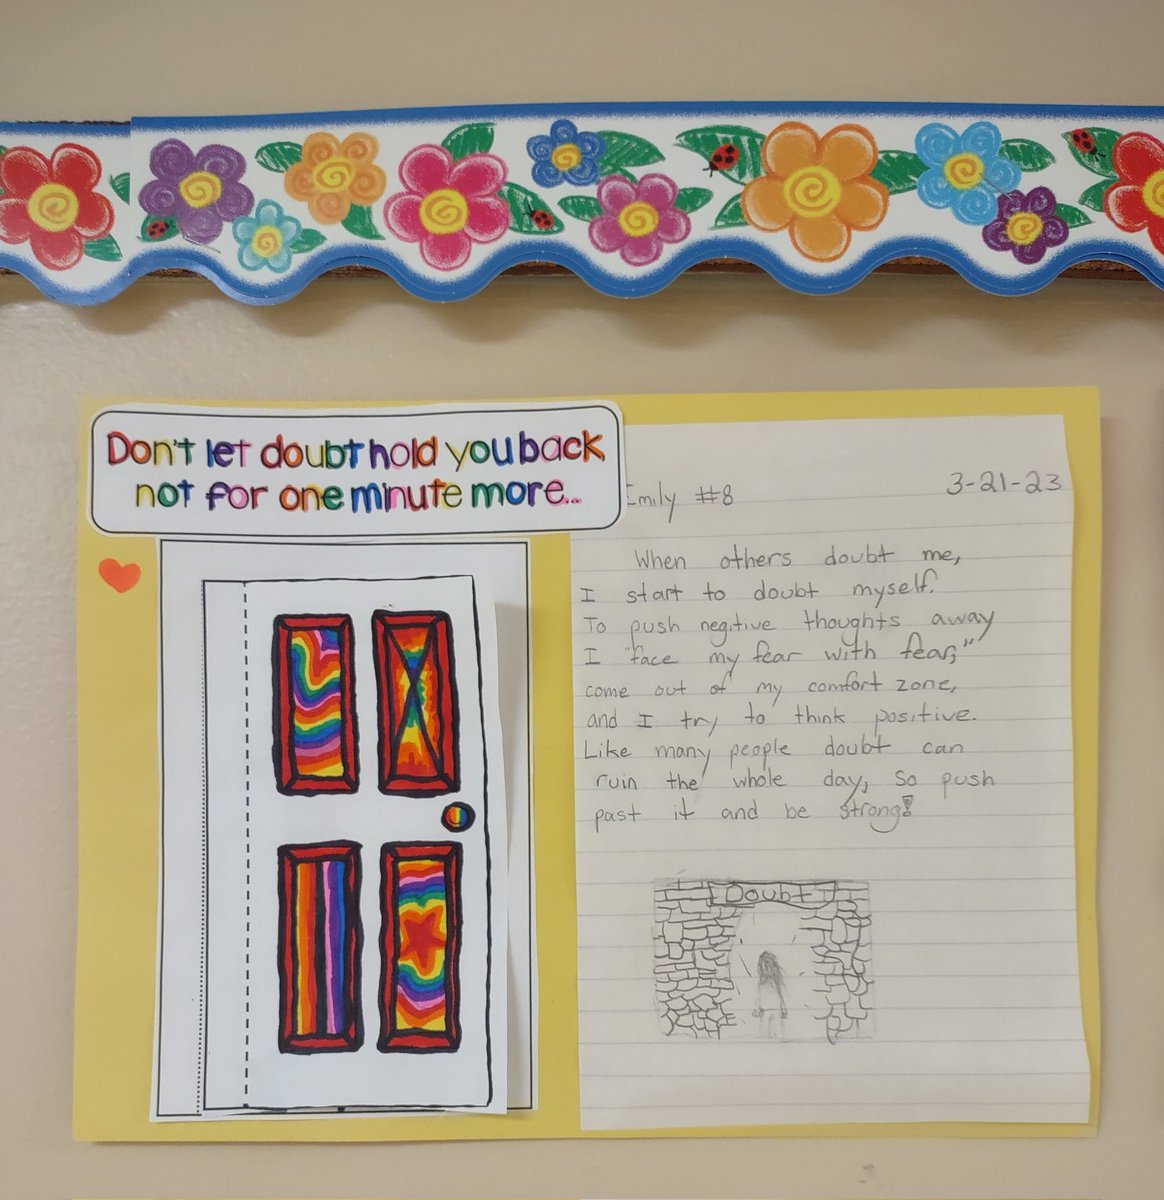 Don't let doubt hold you back
not for one minute more...
Emily #8
3-21-23
When others doubt me,
I start to doubt myself.
To push negitive thoughts away
I "face my fear with fear,"
come out of my comfort zone,
and I try to think positive.
Like many people doubt can
ruin the whole day, so push
past it and be strong!
Doubt